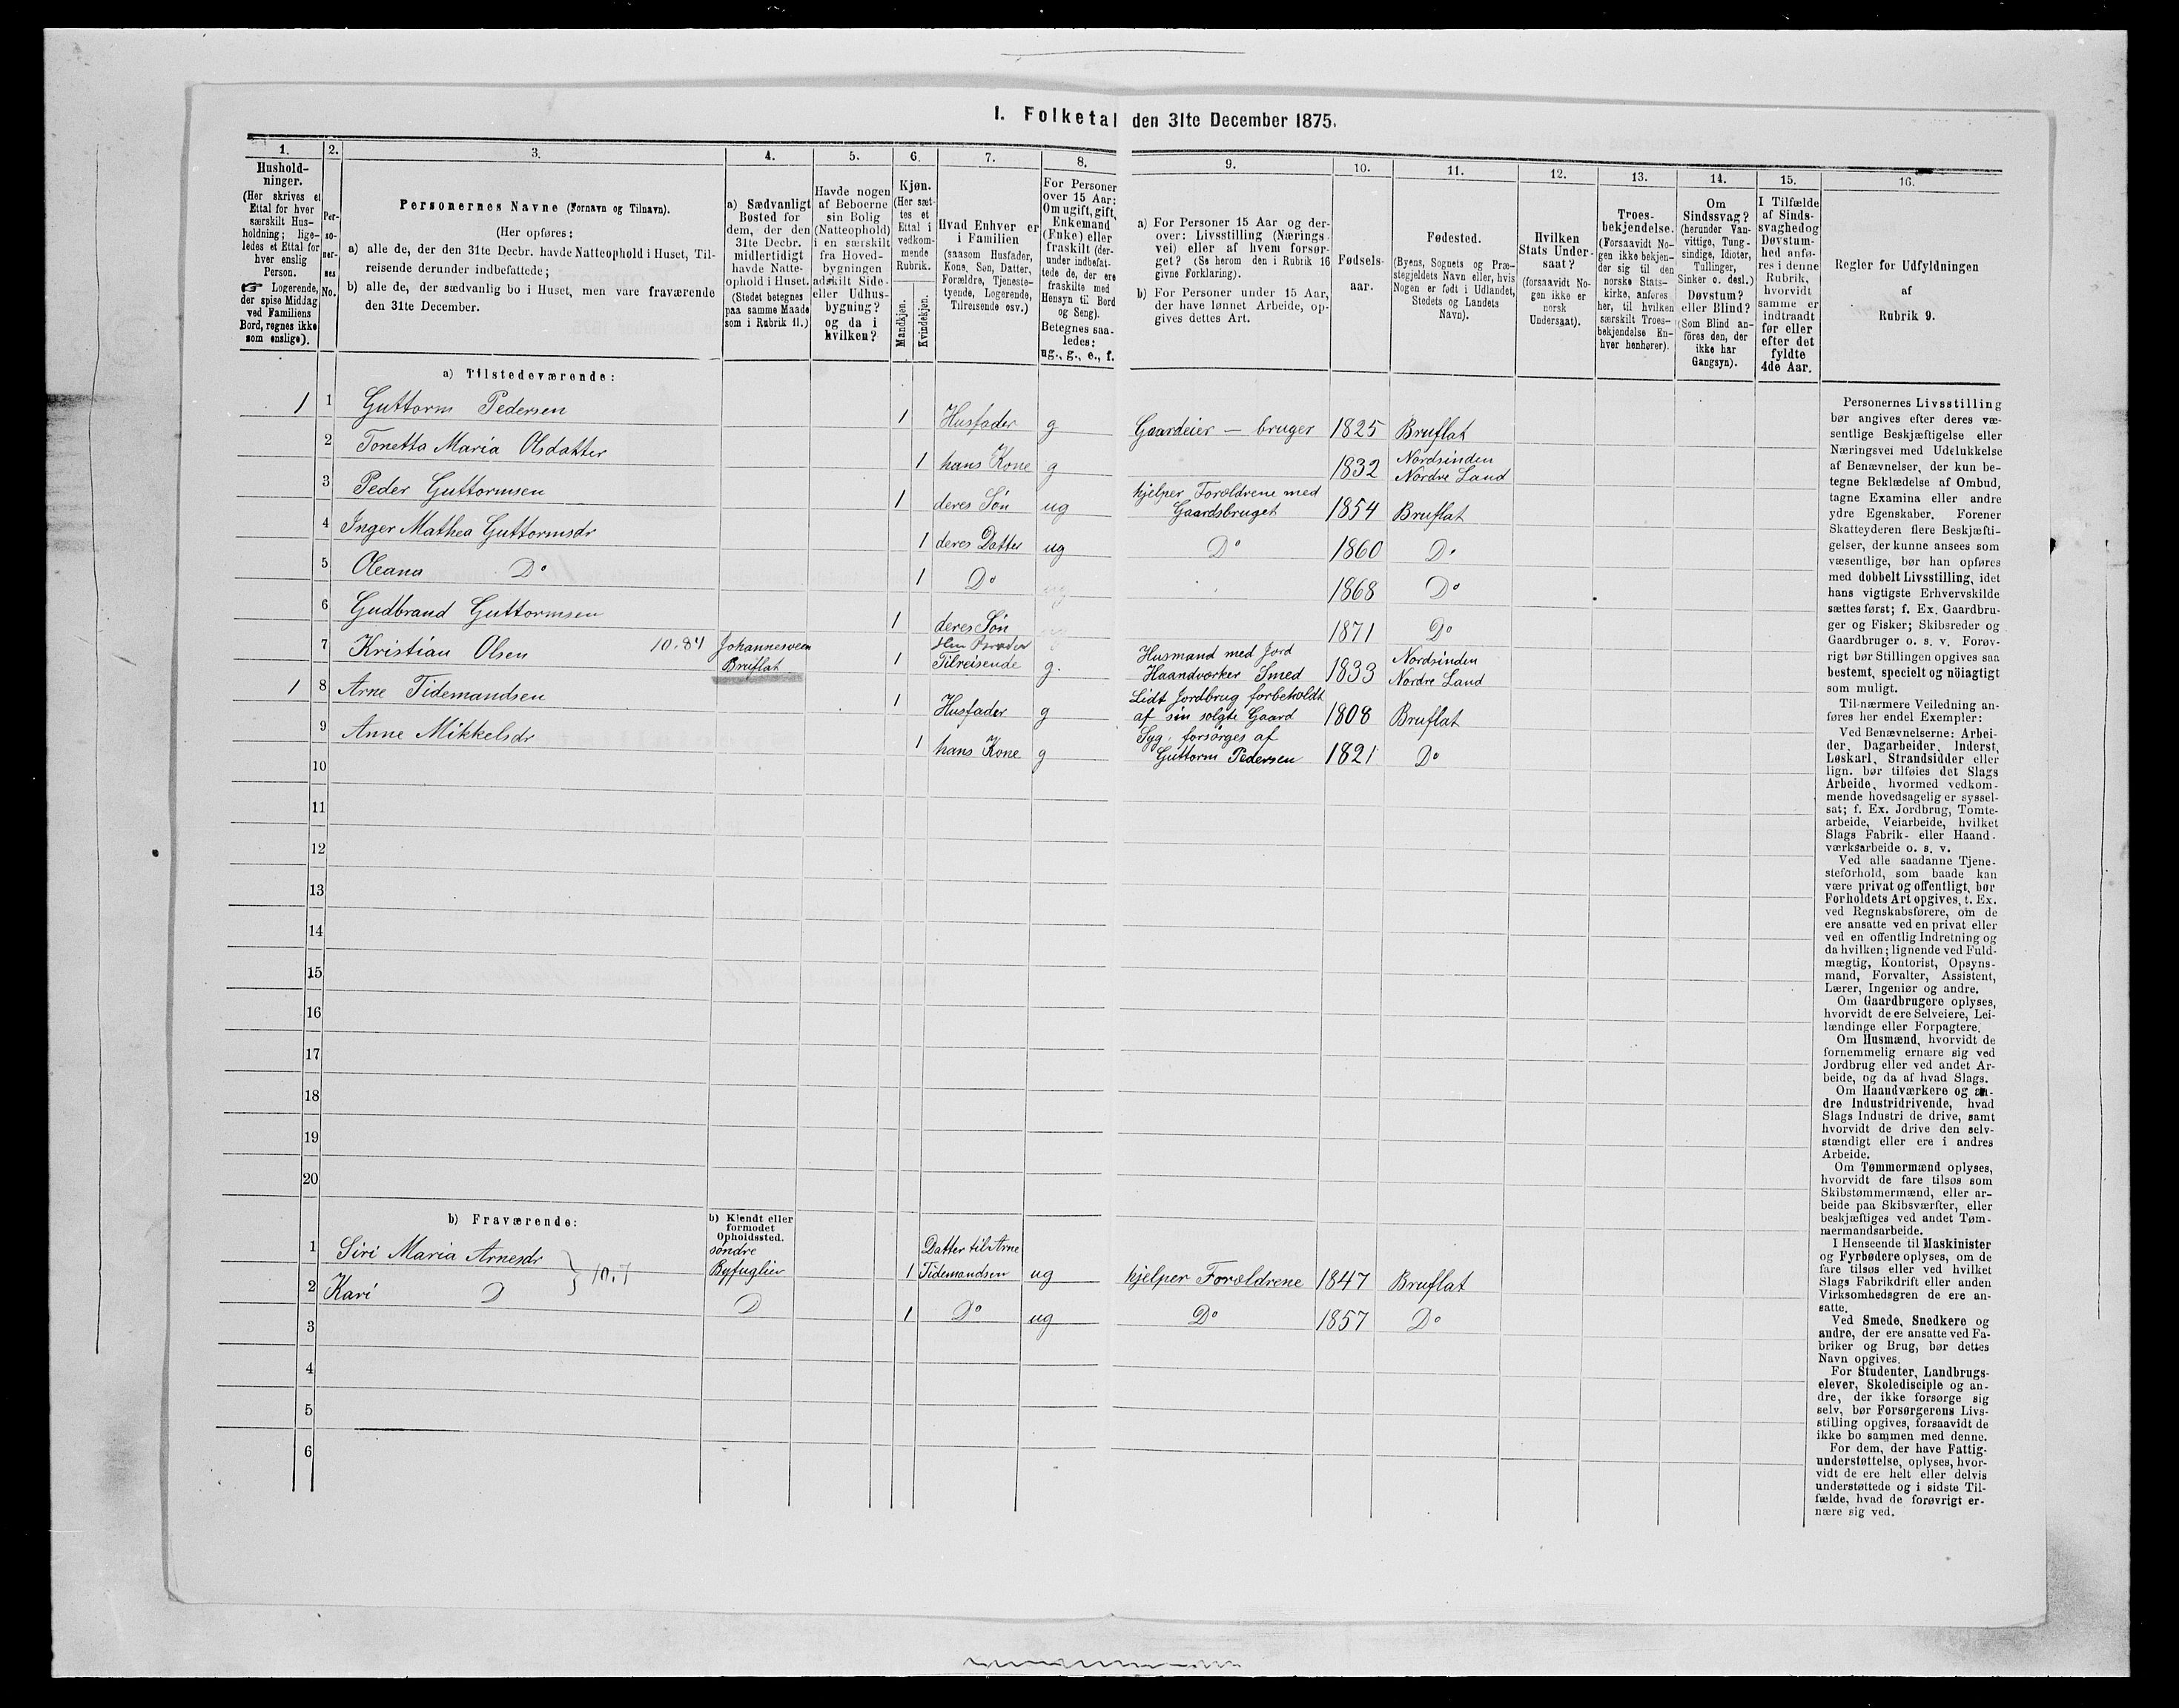 I. Folketal den 31te December 1875.
1.
Hushold-
ninger.
(Her skrives et
Ettal for hver
særskilt Hus-
holdning; lige-
ledes et Ettal for
hver enslig
Person.
☞ Logerende,
der spise Middag
ved Familiens
Bord, regnes ikke
som enslige).
2.
Per-
so-
ner-
nes
No.
3.
Personernes Navne (Fornavn og Tilnavn).
(Her opføres:
a) alle de, der den 31te Decbr. havde Natteophold i Huset, Til-
reisende derunder indbefattede;
b) alle de, der sædvanlig bo i Huset, men vare fraværende
den 31te December.
4.
a) Sædvanligt
Bosted for
dem, der den
31te Decbr.
midlertidigt
havde Natte-
ophold i Huset.
(Stedet betegnes
paa samme Maade
som i Rubrik 11.)
5.
Havde nogen
af Beboerne
sin Bolig
(Natteophold)
i en særskilt
fra Hoved-
bygningen
adskilt Side-
eller Udhus-
bygning?
og da i
hvilken?
6.
Kjøn.
(Her sæt-
tes et
Ettal i
vedkom-
mende
Rubrik.
Mandkjøn.
Kvindekjøn.
7.
Hvad Enhver er
i Familien
(saasom Husfader,
Kone, Søn, Datter,
Forældre, Tjeneste-
tyende, Logerende,
Tilreisende osv.)
8.
For Personer
over 15 Aar:
Om ugift, gift,
Enkemand
(Enke) eller
fraskilt (der-
under indbefat-
tede de, der ere
fraskilte med
Hensyn til Bord
og Seng).
Betegnes saa-
ledes:
ug., g., e., f.
9.
a) For Personer 15 Aar og der-
over: Livsstilling (Nærings-
vei) eller af hvem forsør-
get? (Se herom den i Rubrik 16
givne Forklaring).
b) For Personer under 15 Aar,
der have lønnet Arbeide, op-
gives dettes Art.
10.
Fødsels-
aar.
11.
Fødested.
(Byens, Sognets og Præ-
stegjeldets Navn eller, hvis
Nogen er født i Udlandet,
Stedets og Landets
Navn).
12.
Hvilken
Stats Under-
saat?
(forsaavidt No-
gen ikke er
norsk
Undersaat).
13.
Troes-
bekjendelse.
(Forsaavidt No-
gen ikke bekjen-
der sig til den
norske Stats-
kirke, anføres
her, til hvilken
særskilt Troes-
bekjendelse En-
hver henhører).
14.
Om
Sindssvag?
(herunder Van-
vittige, Tung-
sindige, Idioter,
Tullinger,
Sinker o. desl.)
Døvstum?
eller Blind?
(Som Blind an-
föres den, der
ikke har
Gangsyn).
15.
I Tilfælde
af Sinds-
svaghed og
Døvstum-
hed anfø-
res i denne
Rubrik,
hvorvidt
samme er
indtraadt
før eller
efter det
fyldte
4de Aar.
16.
Regler for Udfyldningen
af
Rubrik 9.
a) Tilstedeværende:
1 1 Guttorm Pedersen 1 Husfader g Gaardeier – bruger 1825 Bruflat
2 Tonetta Maria Olsdatter 1 hans Kone g 1832 Nordsinden
Nordre Land
3 Peder Guttormsen 1 deres Søn ug hjelper Forældrene med
Gaardsbruget 1854 Bruflat
4 Inger Mathea Guttormsdr 1 deres Datter ug Do 1860 Do
5 Oleana Do 1 Do 1868 Do
6 Gudbrand Guttormsen 1 deres Søn 1871 Do
7 Kristian Olsen 10.84 Johannesveen
Bruflat 1 Tilreisende g. Husmand med Jord
Haandværker Smed 1833 Nordsinden
Nordre Land
1 8 Arne Tidemandsen 1 Husfader g Lidt Jordbrug forbeholdt
af sin solgte Gaard 1808 Bruflat
9 Anne Mikkelsdr 1 hans Kone g Syg, forsørges af
Guttorm Pedersen 1821 Do
10
11
12
13
14
15
16
17
18
19
20
b) Fraværende:
b) Kjendt eller
formodet
Opholdssted.
1 Siri Maria Arnesdr } 10.7 søndre
Byfuglien 1 Datter til Arne
Tidemandsen ug hjelper Forældrene 1847 Bruflat
2 Kari D D 1 Do ug Do 1857 Do
3
4
5
6
Personernes Livsstilling
bør angives efter deres væ-
sentlige Beskjæftigelse eller
Næringsvei med Udelukkelse
af Benævnelser, der kun be-
tegne Beklædelse af Ombud,
tagne Examina eller andre
ydre Egenskaber. Forener
Skatteyderen flere Beskjæfti-
gelser, der kunne ansees som
væsentlige, bør han opføres
med dobbelt Livsstilling, idet
hans vigtigste Erhvervskilde
sættes først; f. Ex. Gaardbru-
ger og Fisker; Skibsreder og
Gaardbruger o. s. v. Forøv-
rigt bør Stillingen opgives saa
bestemt, specielt og nöiagtigt
som muligt.
Til nærmere Veiledning an-
føres her endel Exempler:
Ved Benævnelserne: Arbei-
der, Dagarbeider, Inderst,
Løskarl, Strandsidder eller
lign. bør tilføies det Slags
Arbeide, hvormed vedkom-
mende hovedsagelig er syssel-
sat; f. Ex. Jordbrug, Tomte-
arbeide, Veiarbeide, hvilket
Slags Fabrik- eller Haand-
værksarbeide o. s. v.
Ved alle saadanne Tjene-
steforhold, som baade kan
være privat og offentligt, bør
Forholdets Art opgives, t. Ex.
ved Regnskabsførere, om de
ere ansatte ved en privat eller
ved en offentlig Indretning og
da hvilken; lignende ved Fuld-
mægtig, Kontorist, Opsyns-
mand, Forvalter, Assistent,
Lærer, Ingeniør og andre.
Om Gaardbrugere oplyses,
hvorvidt de ere Selveiere, Lei-
lændinge eller Forpagtere.
Om Husmænd, hvorvidt de
fornemmelig ernære sig ved
Jordbrug eller ved andet Ar-
beide, og da af hvad Slags.
Om Haandværkere og an-
dre Industridrivende, hvad
Slags Industri de drive, samt
hvorvidt de drive den selv-
stændigt eller ere i andres
Arbeide.
Om Tømmermænd oplyses,
hvorvidt de fare tilsøs som
Skibstømmermænd, eller ar-
beide paa Skibsværfter, eller
beskjæftiges ved andet Tøm-
mermandsarbeide.
I Henseende til Maskinister
og Fyrbødere oplyses, om de
fare tilsøs eller ved hvilket
Slags Fabrikdrift eller anden
Virksomhedsgren de ere an-
satte.
Ved Smede, Snedkere og
andre, der ere ansatte ved Fa-
briker og Brug, bør dettes
Navn opgives.
For Studenter, Landbrugs-
elever, Skoledisciple og an-
dre, der ikke forsørge sig
selv, bør Forsørgerens Livs-
stilling opgives, forsaavidt de
ikke bo sammen med denne.
For dem, der have Fattig-
understøttelse, oplyses, hvor-
vidt de ere helt eller delvis
understøttede og i sidste Til-
fælde, hvad de forøvrigt er-
nære sig ved.